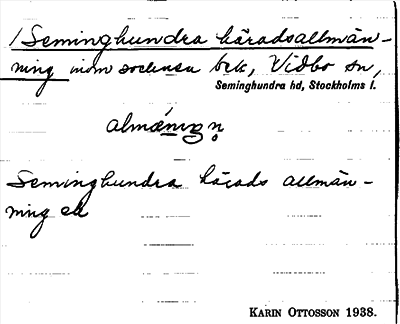 /Seminghundra häradsallmän-
ning inom socknen bek, Vidbo sn,
Seminghundra hd, Stockholms l.
almä́nıŋ
Seminghundra härads allmän-
ning ek
KARIN OTTOSSON 1938.